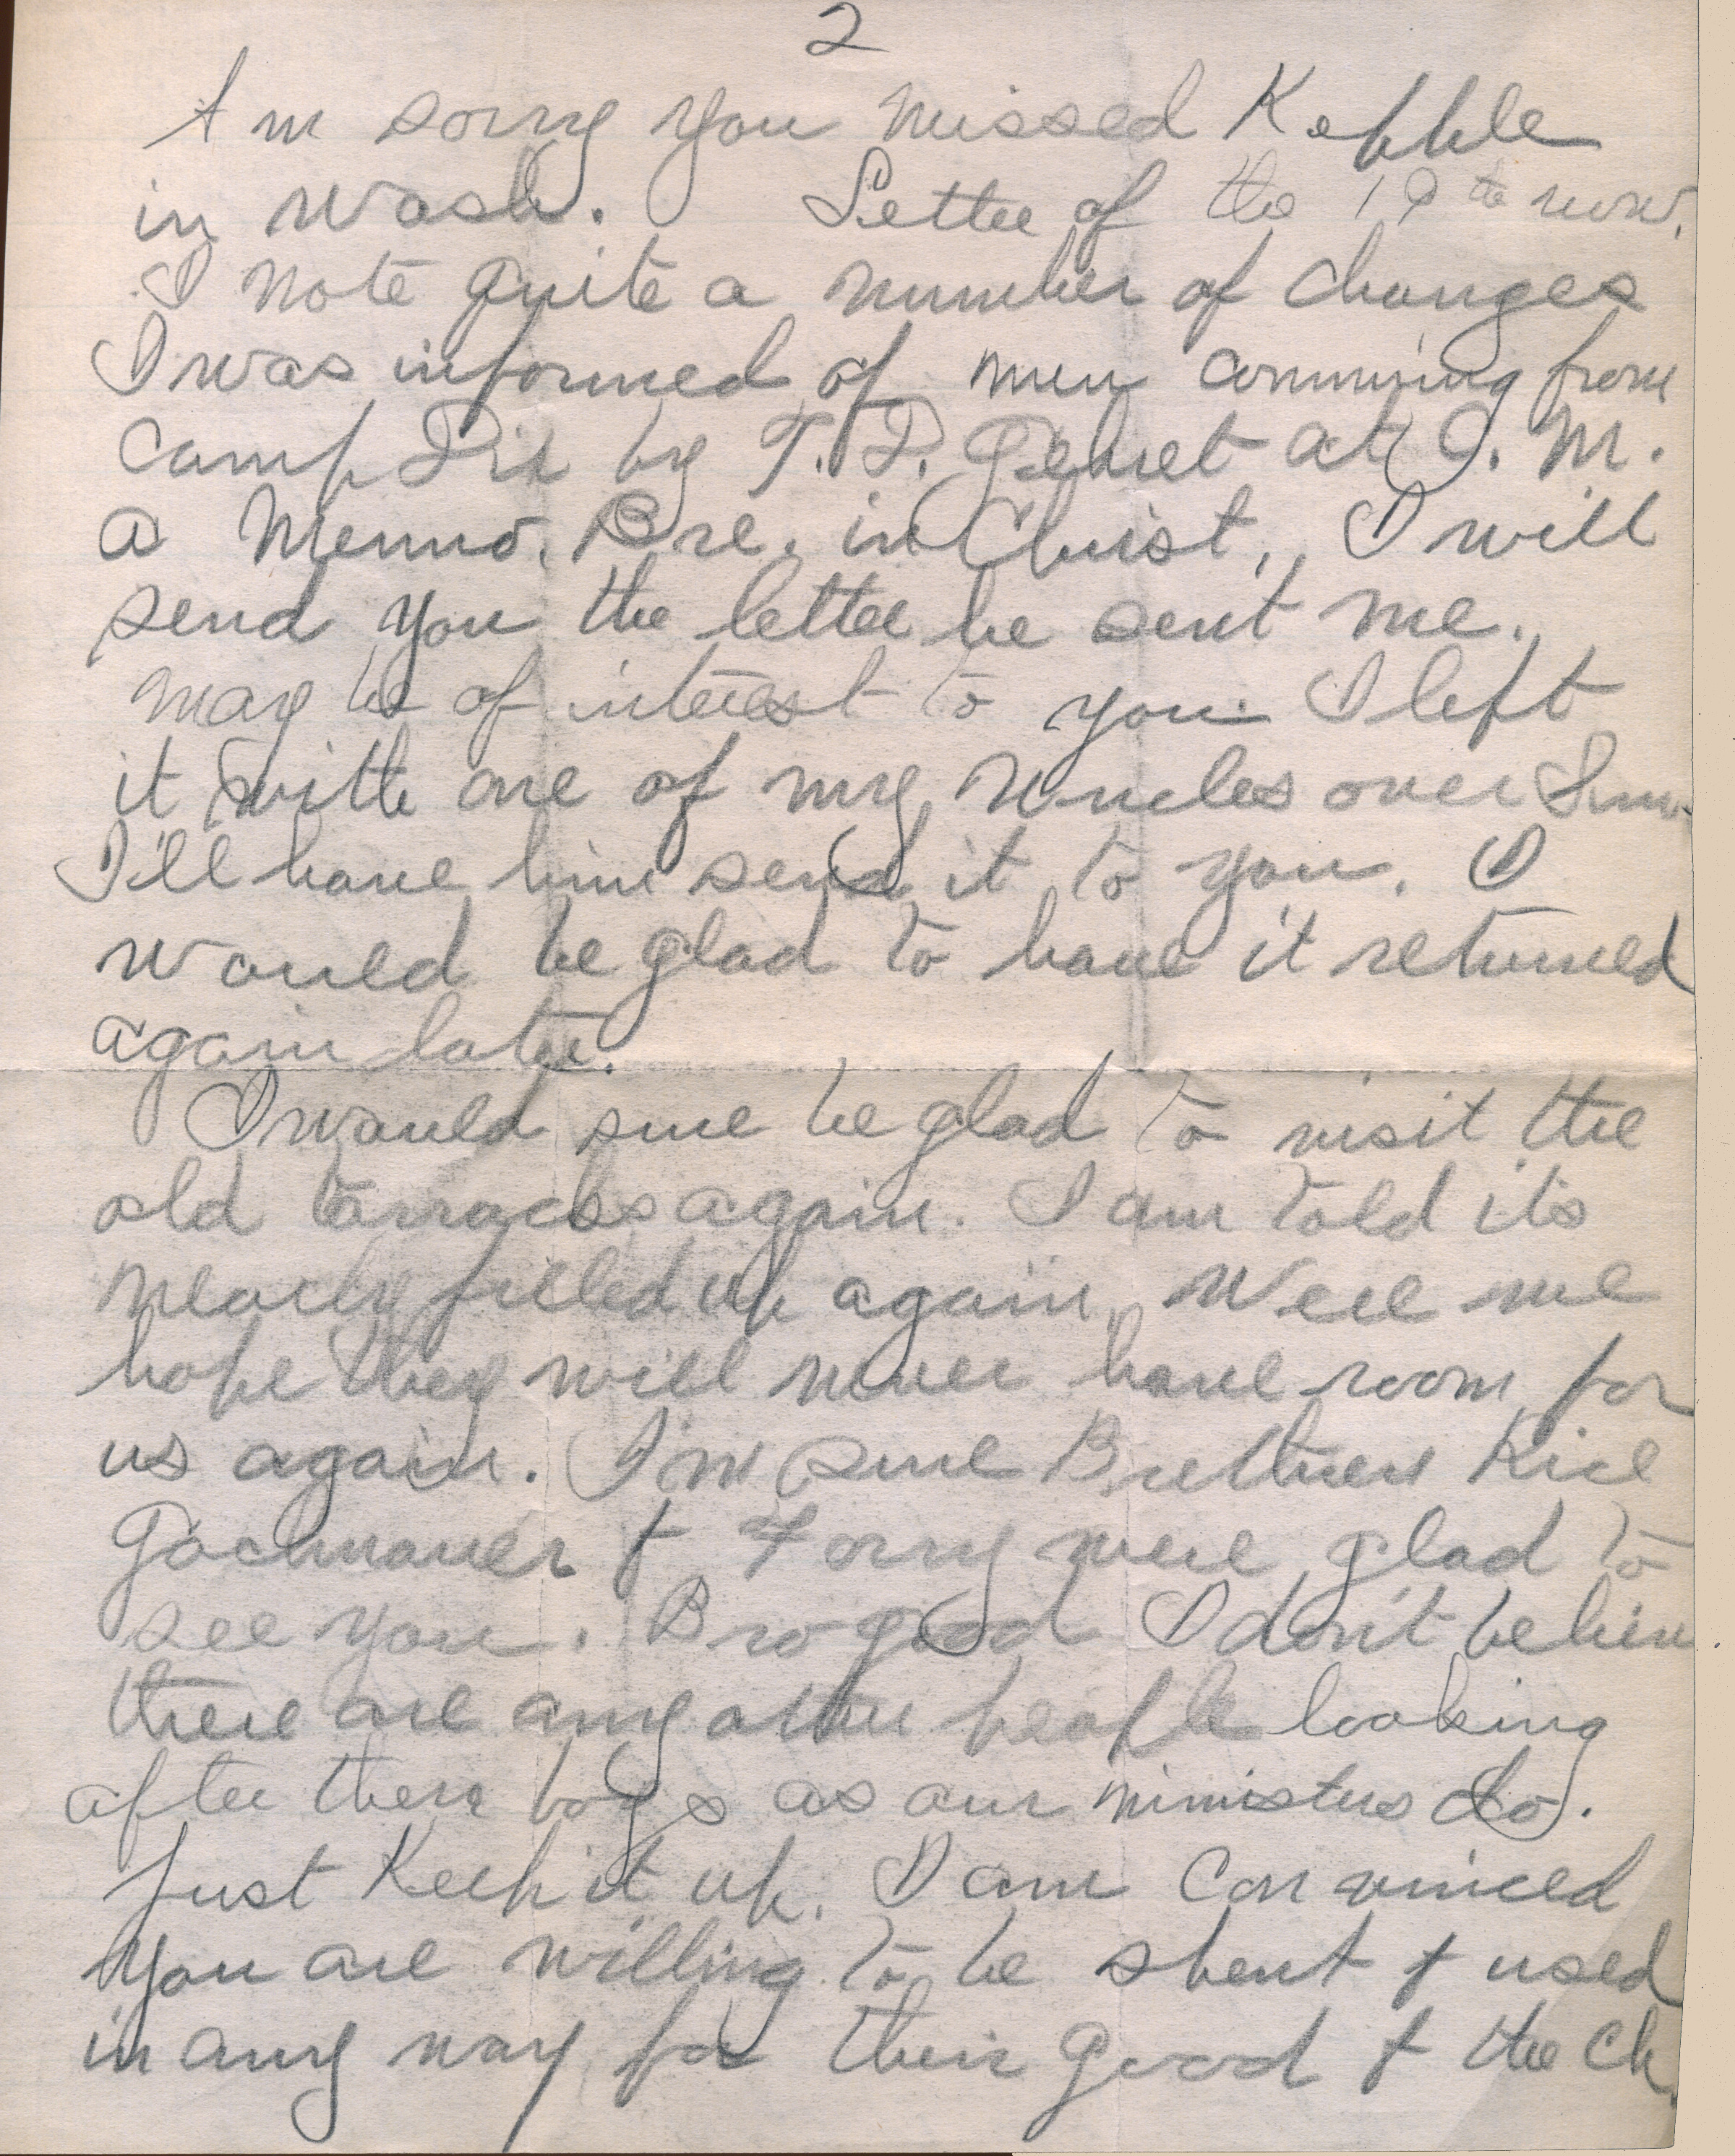 2
Am sorry you missed Kepple
in Wash. Letter of the 19th now.
I note quite a number of changes
I was informed of men comming from
Camp Dix by T. D. at C. M.
a Menno. Bre. in Christ, I will
send you the letter he sent me.
may be of interest to you. I left
it with one of my Uncles over Sun.
I'll have him send it to you. I
would be glad to have it returned
again later.
I would sure be glad to visit the
old barracks again. I am told its
nearly filled up again. Well we
hope they will never have room for
us again. I'm sure Brethren Rice
Gochnauer & Forry were glad to
see you. Bro good I don't believe
there are any other people looking
after there boys as our ministers do.
Just Keep it up. I am Convinced
you are willing to be spent & used
in any way for their good & the Ch.